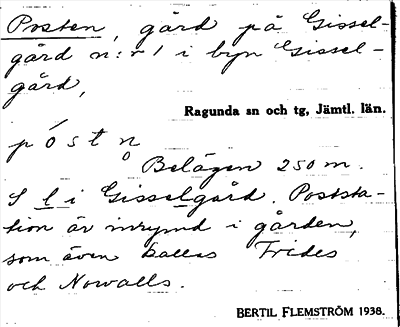 Posten, gård på Gissel-
gård n:r 1 i byn Gissel-
gård,
Ragunda sn och tg, Jämtl. län.
pós t n̥
Belägen 250 m.
S l i Gisselgård. Poststa-
tion är inrymd i gården,
som även kallas Frides
och Nowalls.
BERTIL FLEMSTRÖM 1938.